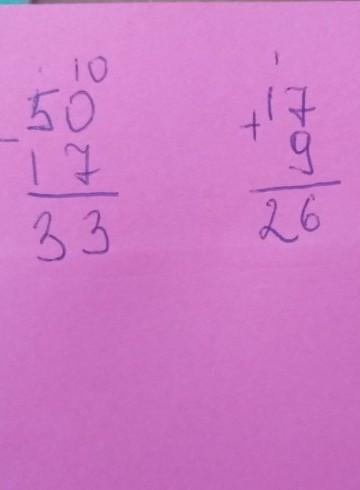 10
50
- 17
33
1
17
+ 9
26